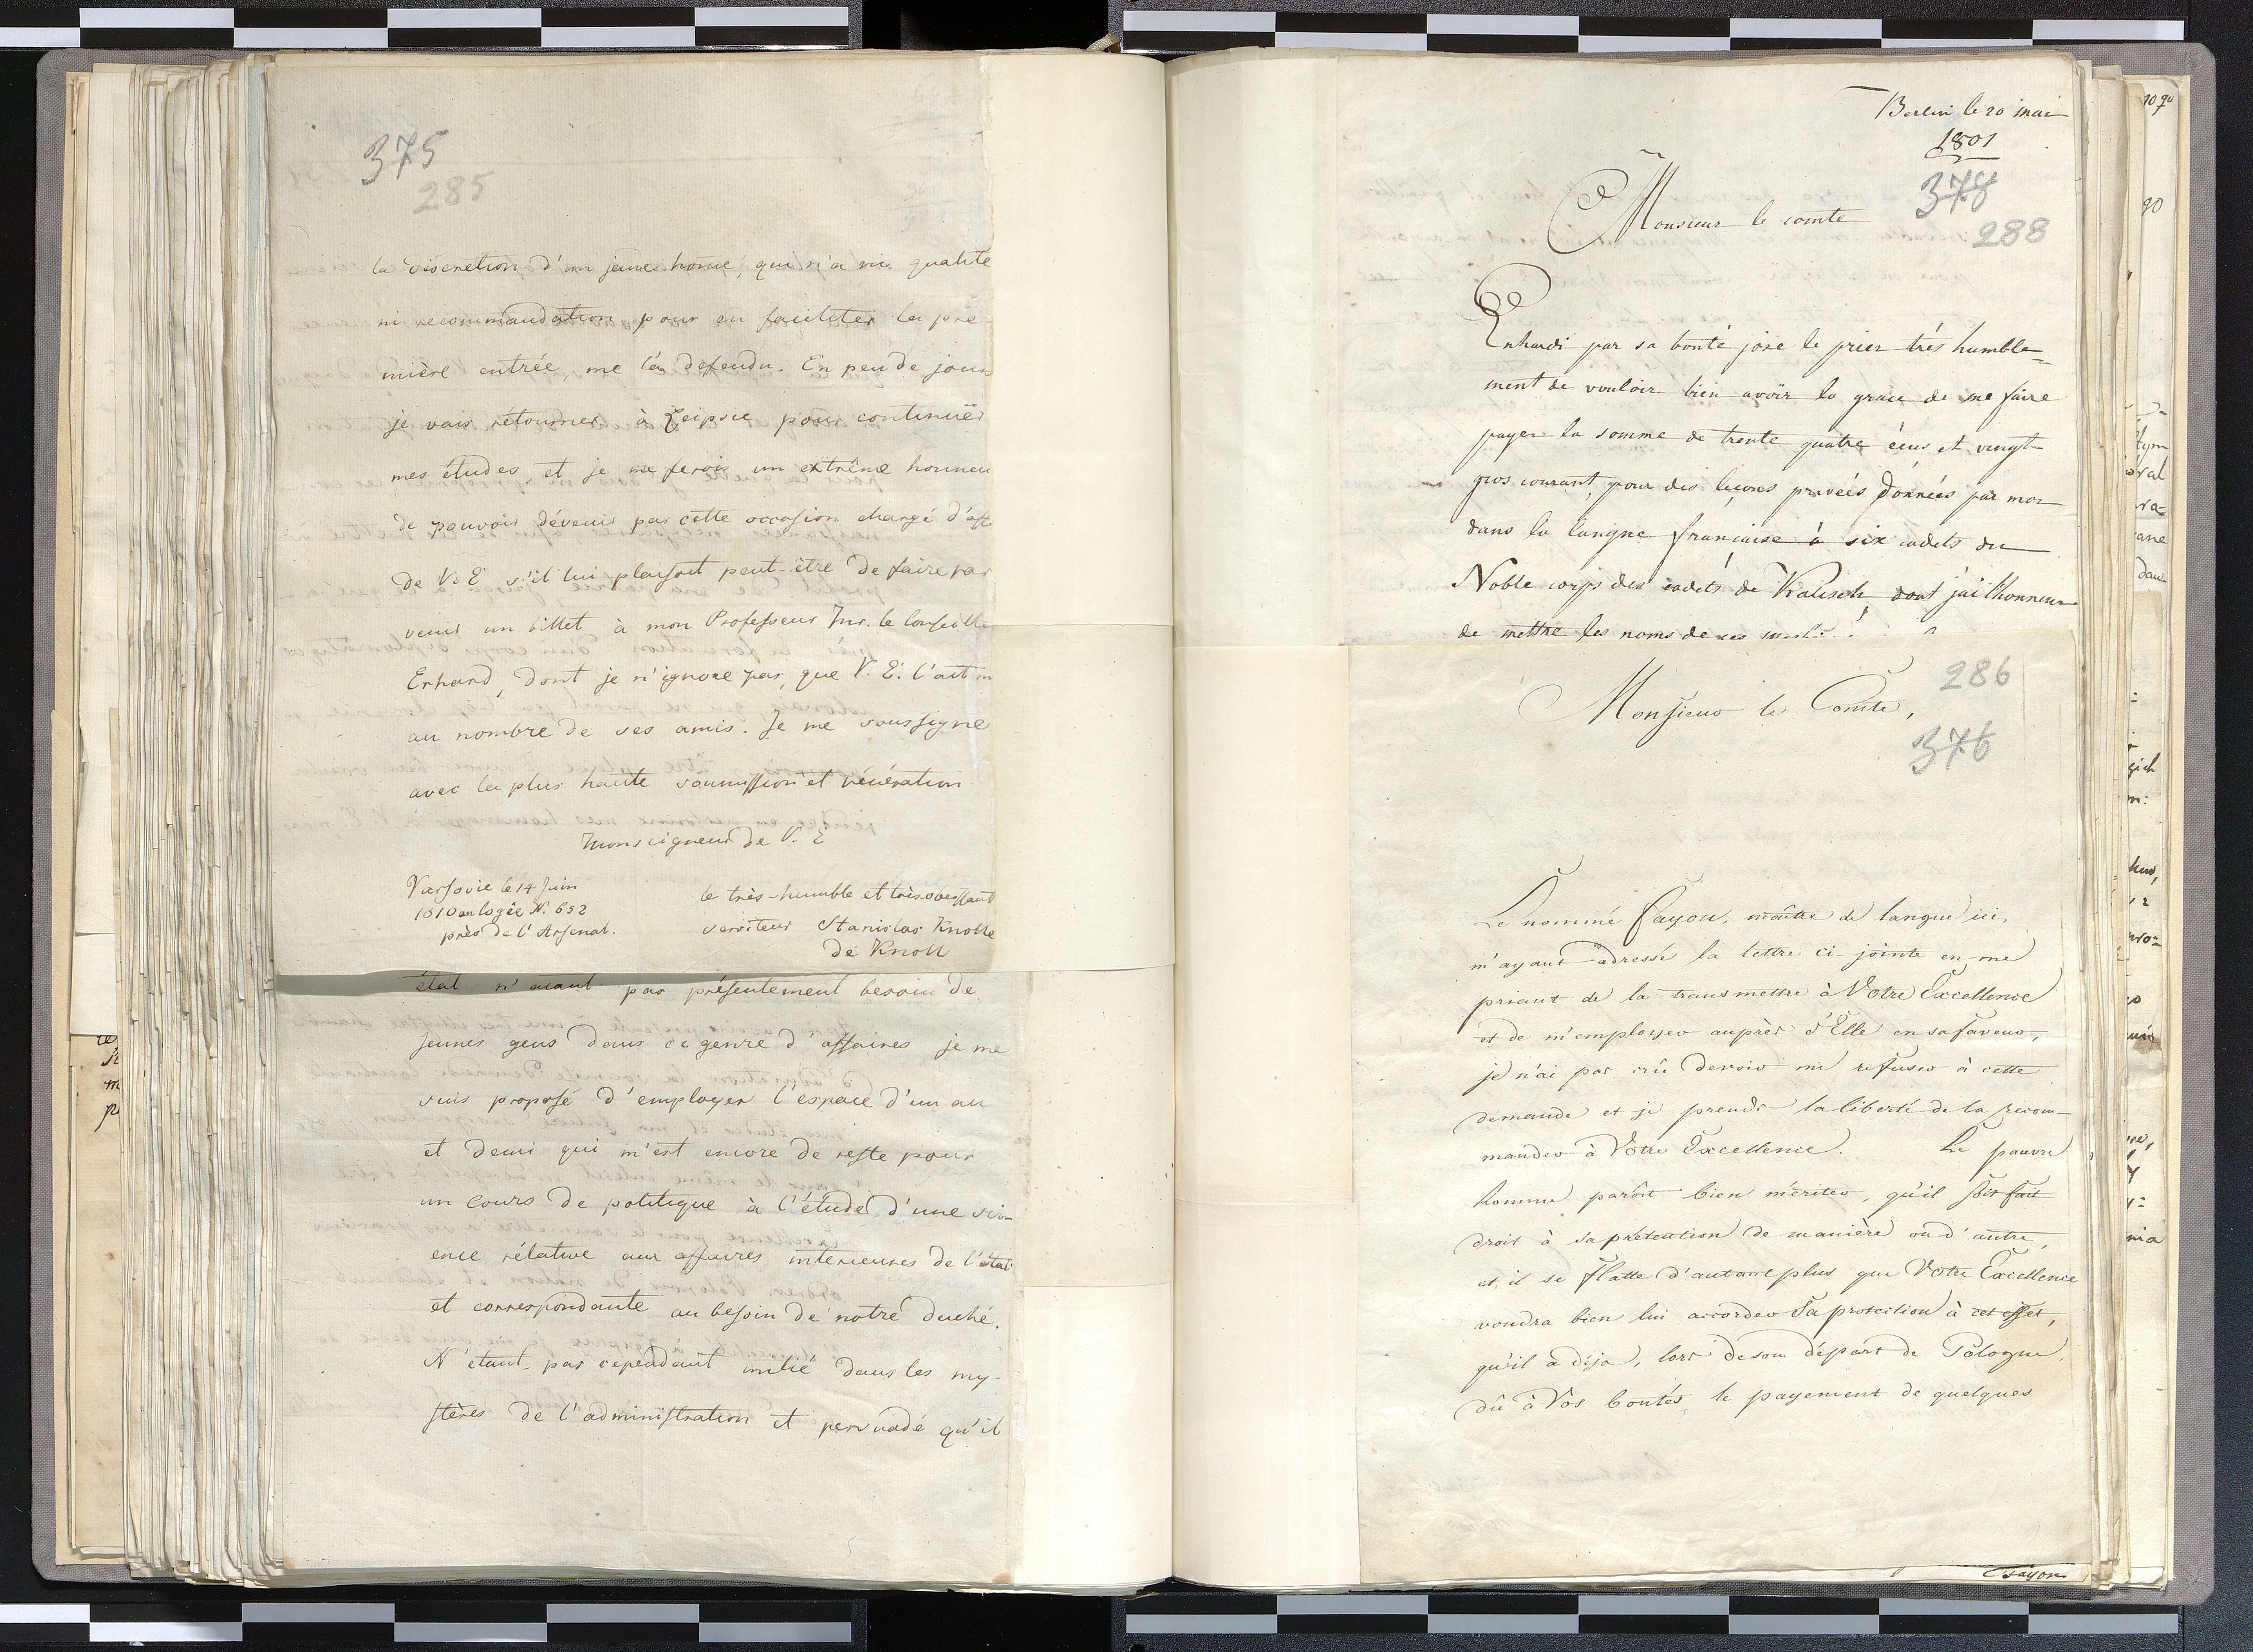 375
285
la discretion d'un jeune home, qui n'a ni qualité
ni recommandation pour en faciliter la pre-
mière entrée, me l'a defendu. En peu de jours
je vais retourner à Leipsic pour continuër
mes études et je me ferois un extrême honneu
de pouvoir dévenir par cette occasion chargé d'aff
de V. E s'il lui plaisoit peut-être de faire par
venir un billet à mon Professeur Mr. le Conseille
Erhard, dont je n'ignore pas, que V. E. l'ait m
au nombre de ses amis. Je me soussigne
avec la plus haute soumission et vénération
Monseigneur de V. E
Varsovie le 14 Juin
1810 en logée N. 652
près de l'Arsenal.
le très-humble et très obeissant
serviteur Stanislas Knolle
de Knoll
état n'aiant pas présentement besoin de
jeunes gens dans ce genre d'affaires je me
suis proposé d'employer l'espace d'un an
et demi qui m'est encore de reste pour
un cours de politique à l'étude d'une sci-
ence rélative aux affaires interieures de l'état
et correspondante au besoin de notre duché.
N'étant pas cependant initié dans les my-
stères de l'administration et persuadé qu'il
Berlin le 20 mai
1801
378
288
Monsieur le comte
Enhardi par sa bonté j'ose le prier très humble=
ment de vouloir bien avoir la grace de me faire
payer la somme de trente quatre écus et vingt
gros courant, pour des leçons privées données par moi
dans la langue française à six cadets du
Noble corps des cadets de Kalisch, dont j'ai l'honneur
de mettre les noms de ces
286
Monsieur le Comte,
376
Le nommé Fayon, maître de langue ici,
m'ayant adressé la lettre ci-jointe en me
priant de la transmettre à Votre Excellence
et de m'employer auprès d'Elle en sa faveur,
je n'ai pas crû devoir me refuser à cette
demande et je prends la liberté de la recom-
mander à Votre Excellence. Le pauvre
homme paroît bien mériter, qu'il soit fait
droit à sa prétention de manière ou d'autre,
et il se flatte d'autant plus que Votre Excellence
voudra bien lui accorder Sa protection à cet effet,
qu'il a déja, lors de son départ de Pologne,
dû à Vos bontés le payement de quelques
Fayon